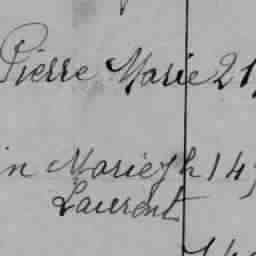 Pierre Marie 21
in Marie Jh 14
Laurent